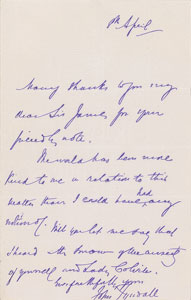 April
Many thanks to you my
dear Sir James for your
friendly note.
The world has been more
kind to me in relation to this
matter than I could have any
had
notion of. Will you let me say that
I heard the
of yourself and Lady
faithfully
John Tyndall